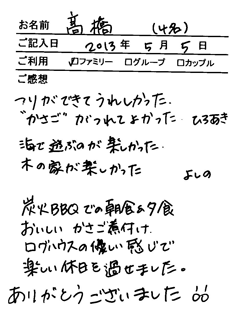 お名前 高橋 (4名)
ご記入日 2013年 5月 5日
ご利用 ☑ファミリー □グループ □カップル
ご感想
つりができてうれしかった.
"かさご"がつれてよかった ひろあき
海で遊ぶのが楽しかった.
木の家が楽しかった よしの
炭火BBQでの朝食&夕食
おいしい かさご煮付け.
ログハウスの優しい感じで
楽しい休日を過せました。
ありがとうございました